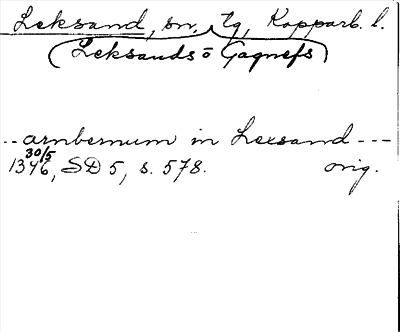 Leksand, sn, tg, Kopparb. l.
(Leksands o Gagnefs)
-- arnbernum in Lexsand ---
30/5
1346, SD 5, s. 578. orig.